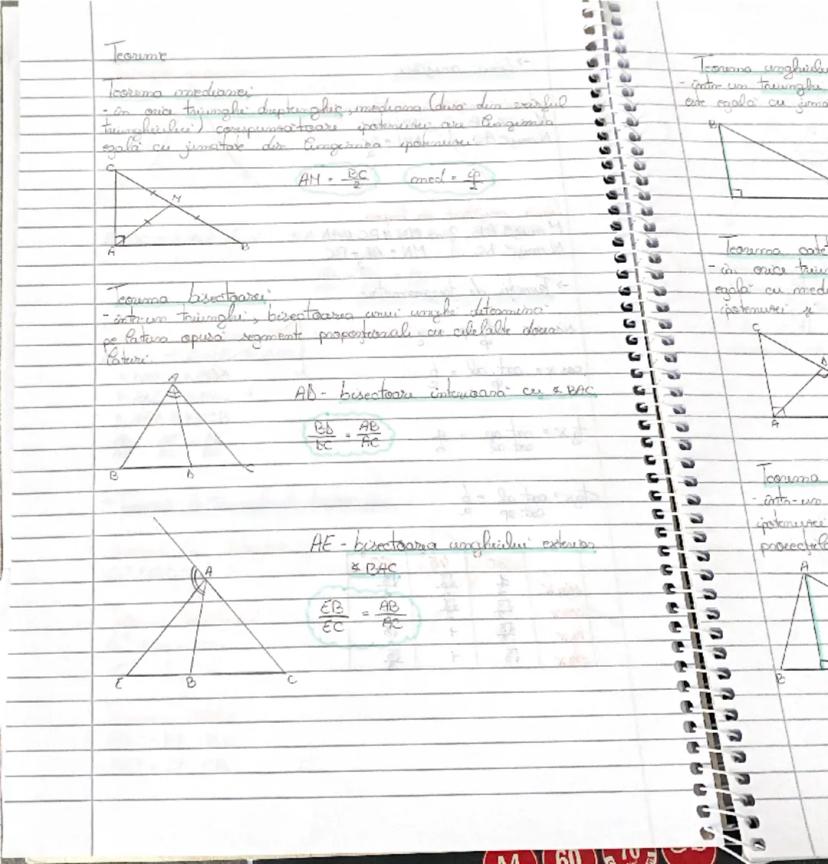 Teoreme
Teorema medianei:
- în orice triunghi dreptunghic, mediana (dusă din vârful
triunghiului) corespunzătoare ipotenusei are lungimea
egală cu jumătate din lungimea ipotenusei
AM = BC/2 med = ip/2
C
M
A B
Teorema bisectoarei:
- într-un triunghi, bisectoarea unui unghi determină
pe latura opusă segmente proporționale cu celelalte două
laturi
A
B D C
AD - bisectoare interioară cu ∢ BAC
BD/DC = AB/AC
AE - bisectoarea unghiului exterior
∢ BAC
EB/EC = AB/AC
A
E B C
Teorema unghiului
- într-un triunghi
este egală cu
B
Teorema
- în orice
egală cu
ipotenusei și
C
A
Teorema
- într-un
ipotenusei
A
B
60
70